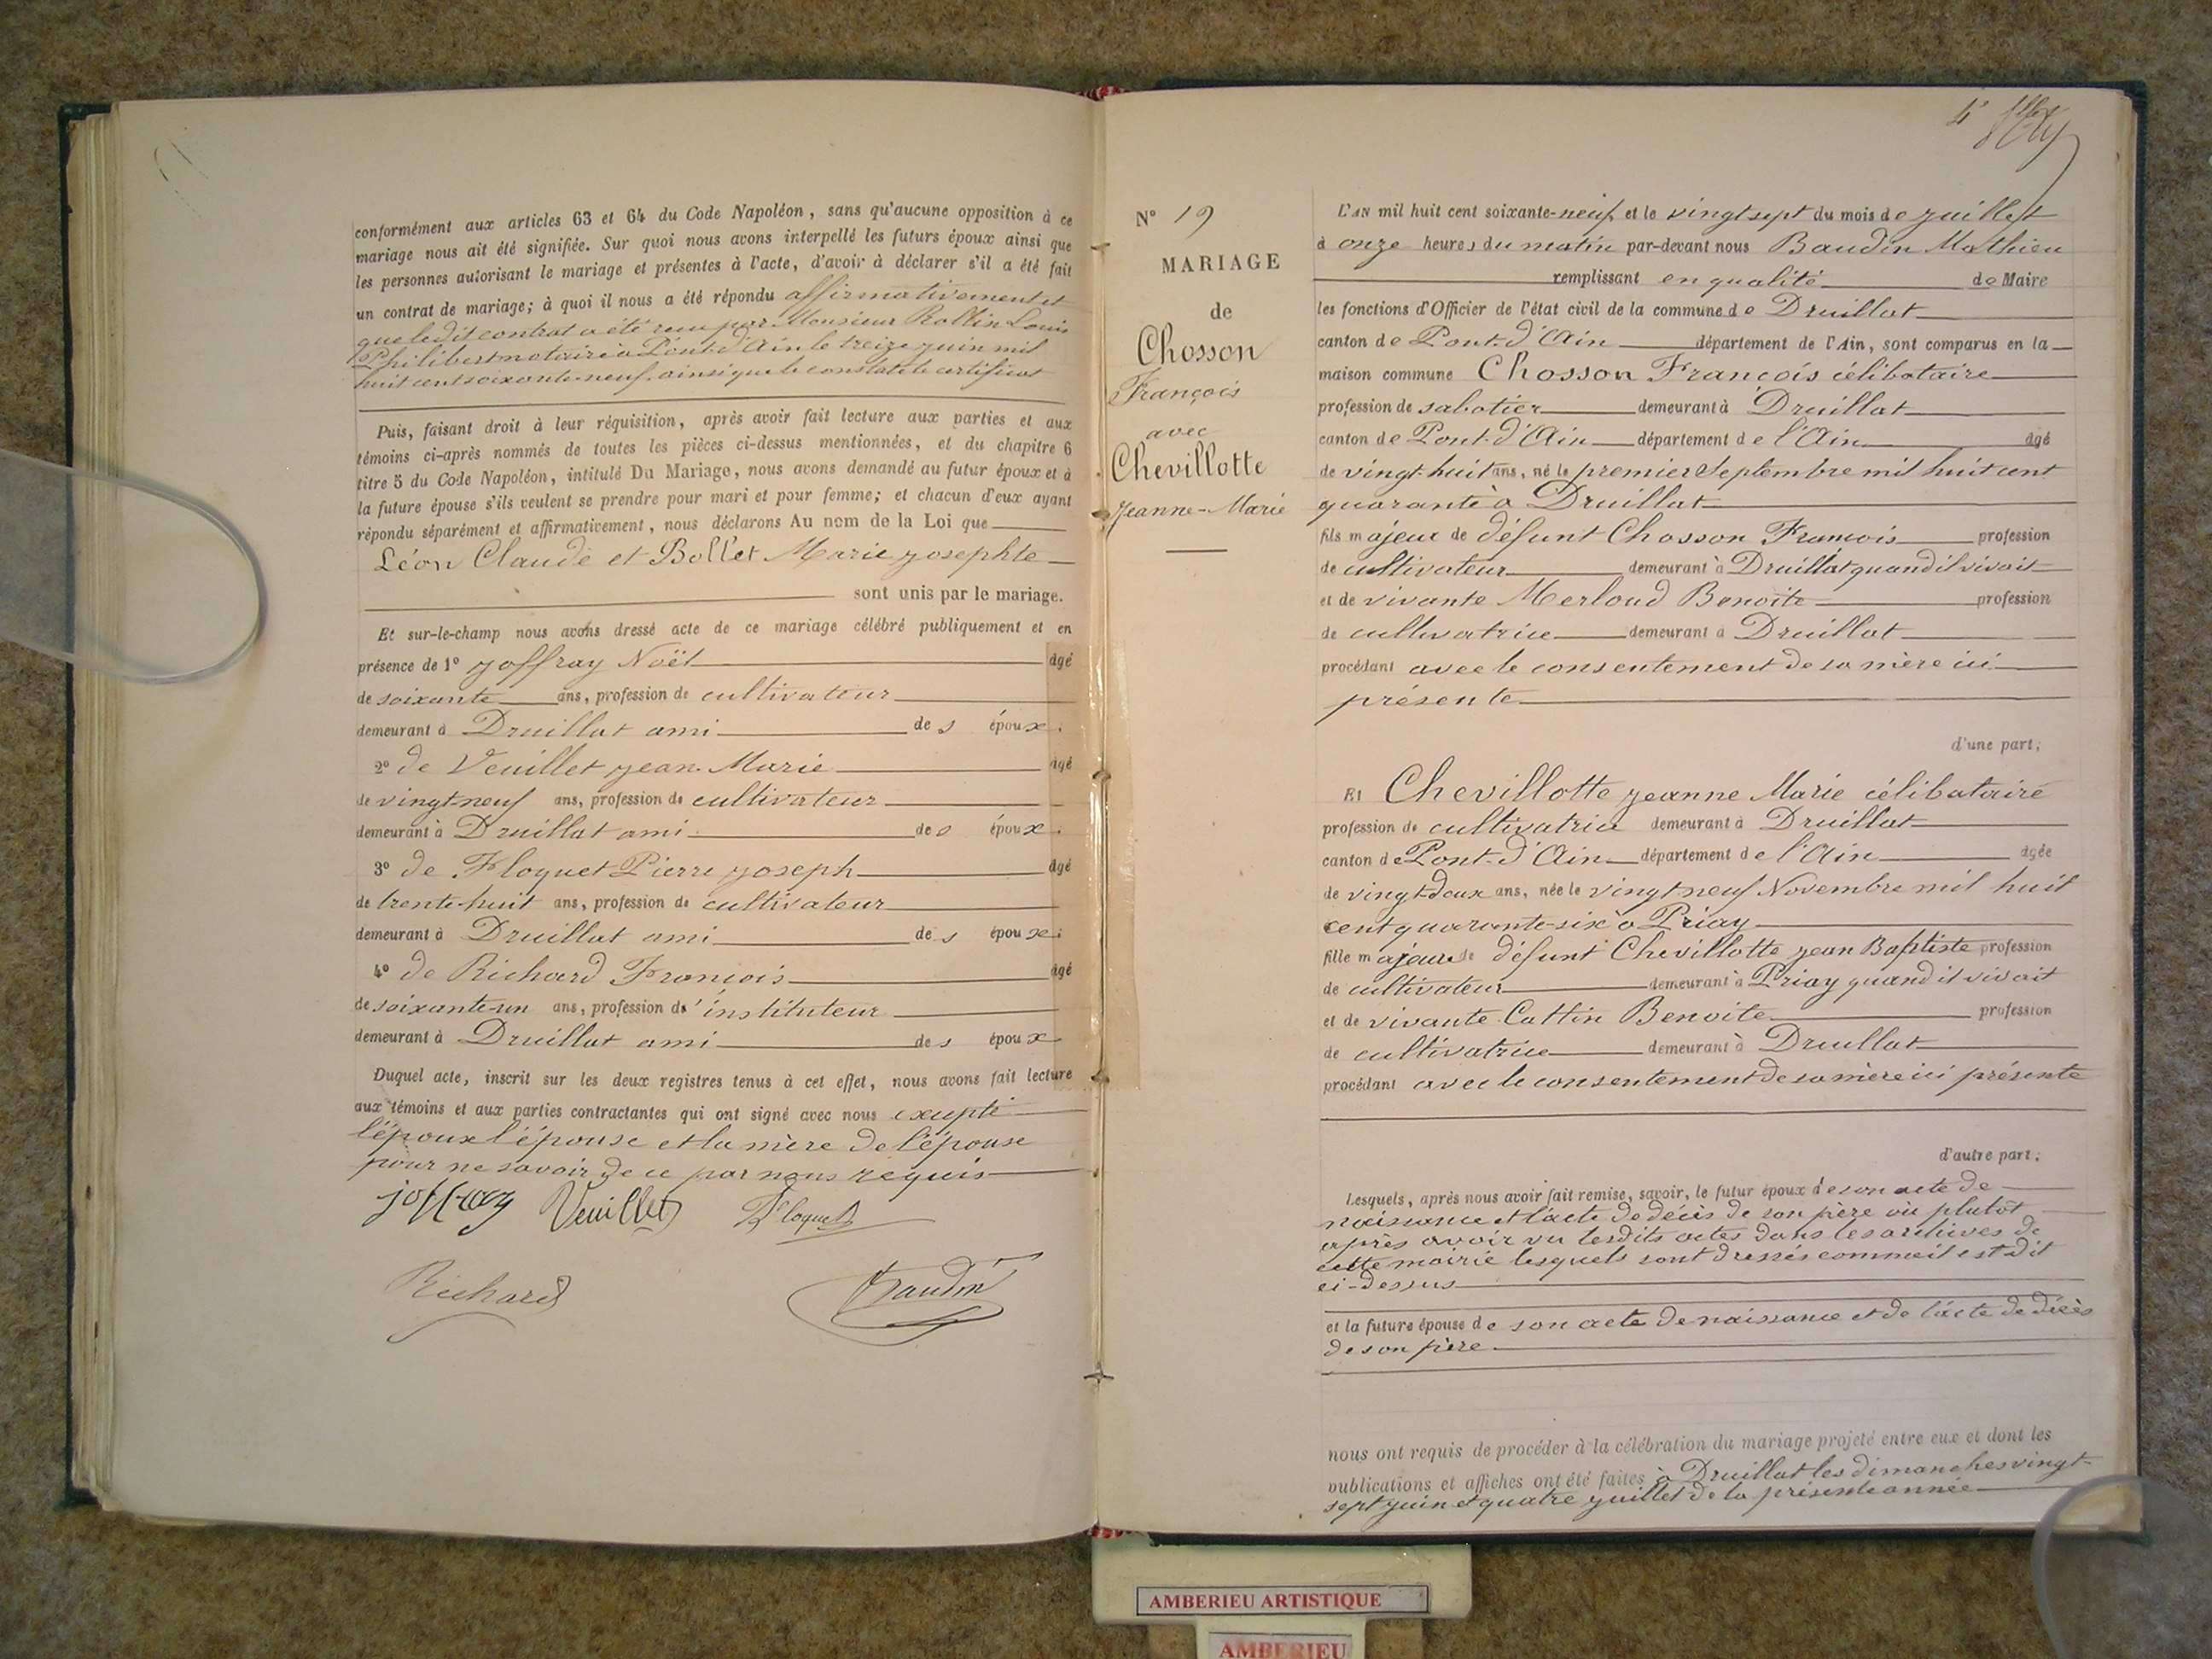 conformément aux articles 63 et 64 du Code Napoléon, sans qu'aucune opposition à ce
mariage nous ait été signifiée. Sur quoi nous avons interpellé les futurs époux ainsi que
les personnes autorisant le mariage et présentes à l'acte, d'avoir à déclarer s'il a été fait
un contrat de mariage; à quoi il nous a été répondu affirmativement et
que ledit contrat a été reçu par Monsieur Rollin Louis
Philibert notaire à Pont-d'Ain le treize juin mil
huit cent soixante-neuf. ainsi que le constate le certificat
Puis, faisant droit à leur réquisition, après avoir fait lecture aux parties et aux
témoins ci-après nommés de toutes les pièces ci-dessus mentionnées, et du chapitre 6
titre 5 du Code Napoléon, intitulé Du Mariage, nous avons demandé au futur époux et à
la future épouse s'ils veulent se prendre pour mari et pour femme; et chacun d'eux ayant
répondu séparément et affirmativement, nous déclarons Au nom de la Loi que
Léon Claude et Bollet Marie Josephte
sont unis par le mariage.
Et sur-le-champ nous avons dressé acte de ce mariage célébré publiquement et en
présence de 1° Joffray Noël âgé
de soixante ans, profession de cultivateur
demeurant à Druillat ami des époux.
2° de Veuillet Jean-Marie âgé
de vingt-neuf ans, profession de cultivateur
demeurant à Druillat ami des époux.
3° de Floquet Pierre Joseph âgé
de trente-huit ans, profession de cultivateur
demeurant à Druillat ami des époux.
4° de Richard François âgé
de soixante-un ans, profession d'instituteur
demeurant à Druillat ami des époux
Duquel acte, inscrit sur les deux registres tenus à cet effet, nous avons fait lecture
aux témoins et aux parties contractantes qui ont signé avec nous excepté
l'époux l'épouse et la mère de l'épouse
pour ne savoir de ce par nous requis
joffray Veuillet Floquet
Richard Baudin
N° 19
MARIAGE
de
Chosson
François
avec
Chevillotte
Jeanne-Marie
L'AN mil huit cent soixante-neuf et le vingt sept du mois de juillet
à onze heures du matin par-devant nous Baudin Mathieu
remplissant en qualité de Maire
les fonctions d'Officier de l'état civil de la commune de Druillat
canton de Pont-d'Ain département de l'Ain, sont comparus en la
maison commune Chosson François célibataire
profession de sabotier demeurant à Druillat
canton de Pont-d'Ain département de l'Ain âgé
de vingt-huit ans, né le premier Septembre mil huit cent
quarante à Druillat
fils majeur de défunt Chosson François profession
de cultivateur demeurant à Druillat quand il vivait
et de vivante Merloud Benoite profession
de cultivatrice demeurant à Druillat
procédant avec le consentement de sa mère ici
présente
d'une part;
Et Chevillotte Jeanne Marie célibataire
profession de cultivatrice demeurant à Druillat
canton de Pont-d'Ain département de l'Ain âgée
de vingt-deux ans, née le vingt neuf Novembre mil huit
cent quarante-six à Priay
fille majeure de défunt Chevillotte Jean Baptiste profession
de cultivateur demeurant à Priay quand il vivait
et de vivante Cattin Benoite profession
de cultivatrice demeurant à Druillat
procédant avec le consentement de sa mère ici présente
d'autre part;
Lesquels, après nous avoir fait remise, savoir, le futur époux de son acte de
naissance et l'acte de décès de son père ou plutôt
après avoir vu lesdits actes dans les archives de
cette mairie lesquels sont dressés comme il est dit
ci-dessus
et la future épouse de son acte de naissance et de l'acte de décès
de son père
nous ont requis de procéder à la célébration du mariage projeté entre eux et dont les
publications et affiches ont été faites à Druillat les dimanches vingt-
sept juin et quatre juillet de la présente année
AMBERIEU ARTISTIQUE
AMBERIEU